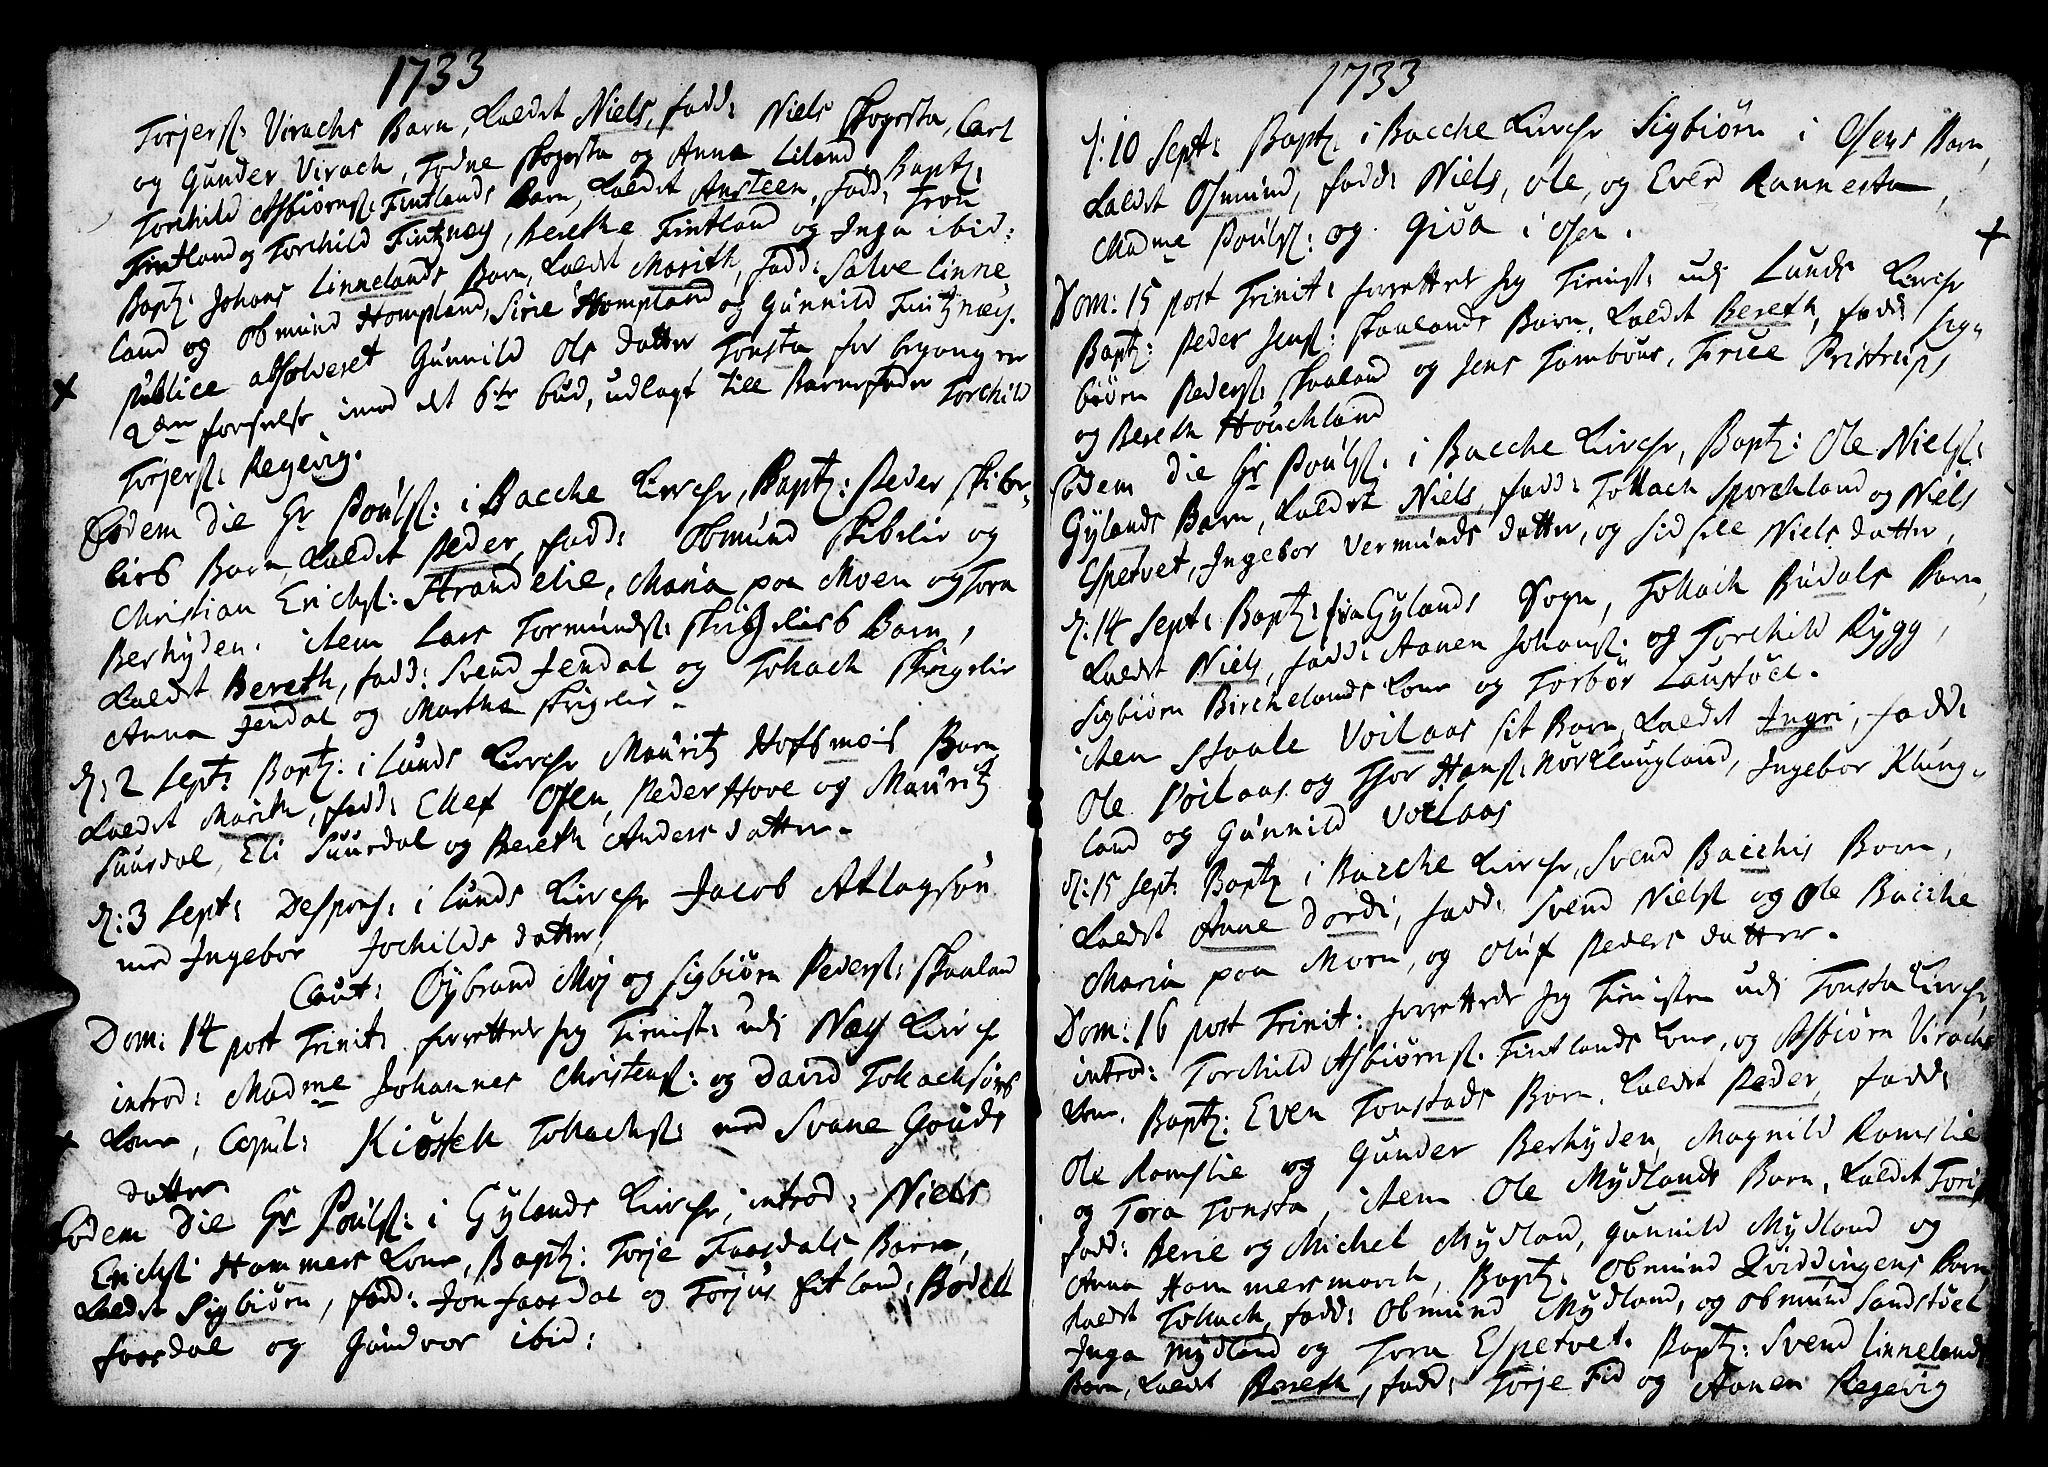 1733
Torjers: Virachs Barn, kaldet Niels, fadd: Niels Skogesta, Carl
og Gunder Virach, Todne Skogesta og Anna Liland, Baptz:
Torchild Asbiørns: Fintlands Barn, kaldet Ansteen, fadd: Tron
Fintland og Torchild Fintznæs, Berethe Fintland og Inga ibid:
Baptz: Johans Linnelands Barn, kaldet Marith, fadd: Salve Linne,
land og Obmund Hompland, Sirie Hompland og Gunnild Fintznæs.
publice absolveret Gunnild Ols datter Tonsta for begangen
2den forseelse imod det 6te bud, udlagt till Barnefader Torchild
Torjers: Regevig.
Eodem die Hr Pouls: i Bacche Kirche, Baptz: Peder Skibe-
lies Barn, kaldet Peder, fadd: Obmund Skibelie og
Christian Erichs: Strandelie, Maria paa Moen og Tora
Berhyden. item Lars Tormunds: Skrigelies Barn,
kaldet Bereth, fadd: Svend Jendal og Tollach Skrigelie
Anna Jendal og Martha Skrigelie.
d: 2 Sept: Baptz: i Lunds Kirche Mauritz Hofsmois Barn
kaldet Marith, fadd: Ellef Osen, Peder Hove og Mauritz
Suursdal, Eli Suursdal og Bereth Anders datter.
d: 3 Sept: Despons: i Lunds Kirche Jacob Atlagsøn
med Ingebor Jochilds datter,
Caut: Øybrand Moj og Sigbiørn Peders: Skaaland
Dom: 14 post Trinit: forrettede jeg Tienist: udj Næs Kirche
introd: Madme Johannes Christens: og David Tollachsøns
Kone, Copul: Kiøstell Tollachs: med Svane Gouds
datter
Eodem die Hr Pouls: i Gylands Kirche, introd: Niels
Erichs: Hammers Kone, Baptz: Torje Faasdals Barn,
kaldet Sigbiørn, fadd: Jon Faasdal og Torjus Fitland, Bodell
Faasdal og Gundvor ibid:
1733
d: 10 Sept: Baptz: i Bacche Kirche Sigbiørn i Osens Barn,
kaldet Osmund, fadd: Niels, Ole, og Even Rannesta,
Madme Pouls: og Giøa i Osen.
Dom: 15 post Trinit: forrettet jeg Tienist: udj Lunds Kirche
Baptz: Peder Jens: Skaalands Barn, kaldet Bereth, fadd: Sig-
biørn Peders: Skaaland og Jens Tambour, Friee Pristrups
og Bereth Houchland
Eodem die Hr Pouls: i Bacche Kirche, Baptz: Ole Niels:
Gylands Barn, kaldet Niels, fadd: Tollach Sporchland og Niels
Espetvet, Ingebor Vermunds datter, og Sidsele Niels datter,
d: 14 Sept: Baptz: fra Gylands Sogn, Tollach Budals Barn,
kaldet Niels, fadd: Aanen Johans: og Torchild Rygg,
Sigbiørn Birchelands Kone og Torbor Laustøel.
item Staale Voilaas sit Barn, kaldet Ingri, fadd:
Ole Voilaas og Thor Hans: Nørklungland, Ingebor Klung-
land og Gunnild Voilaas
d: 15 Sept: Baptz i Bacche Kirche, Svend Bacchis Barn,
kaldet Anne Dordi, fadd: Svend Niels: og Ole Bacche
Maria paa Moen, og Oluf Peders datter.
Dom: 16 post Trinit: forrettede jeg Tienisten udj Tonsta Kirche,
introd: Torchild Asbiørns: Fintlands Kone, og Asbiørn Virachs
Kone. Baptz: Even Tonstads Barn, kaldet Peder, fadd:
Ole Ramslie og Gunder Berhyden, Magnild Ramslie
og Tora Tonsta, item Ole Mydlands Barn, kaldet Toris
fadd: Berie og Michel Mydland, Gunnild Mydland og
Anna Hammersmarch, Baptz: Obmund Qviddingens Barn
kaldet Tollach, fadd: Obmund Mydland, og Obmund Sandstøel
Inga Mydland og Tora Espetvet. Baptz: Svend Linnelands
Barn, kaldet Bereth, fadd: Torje Fid og Aanen Regevig